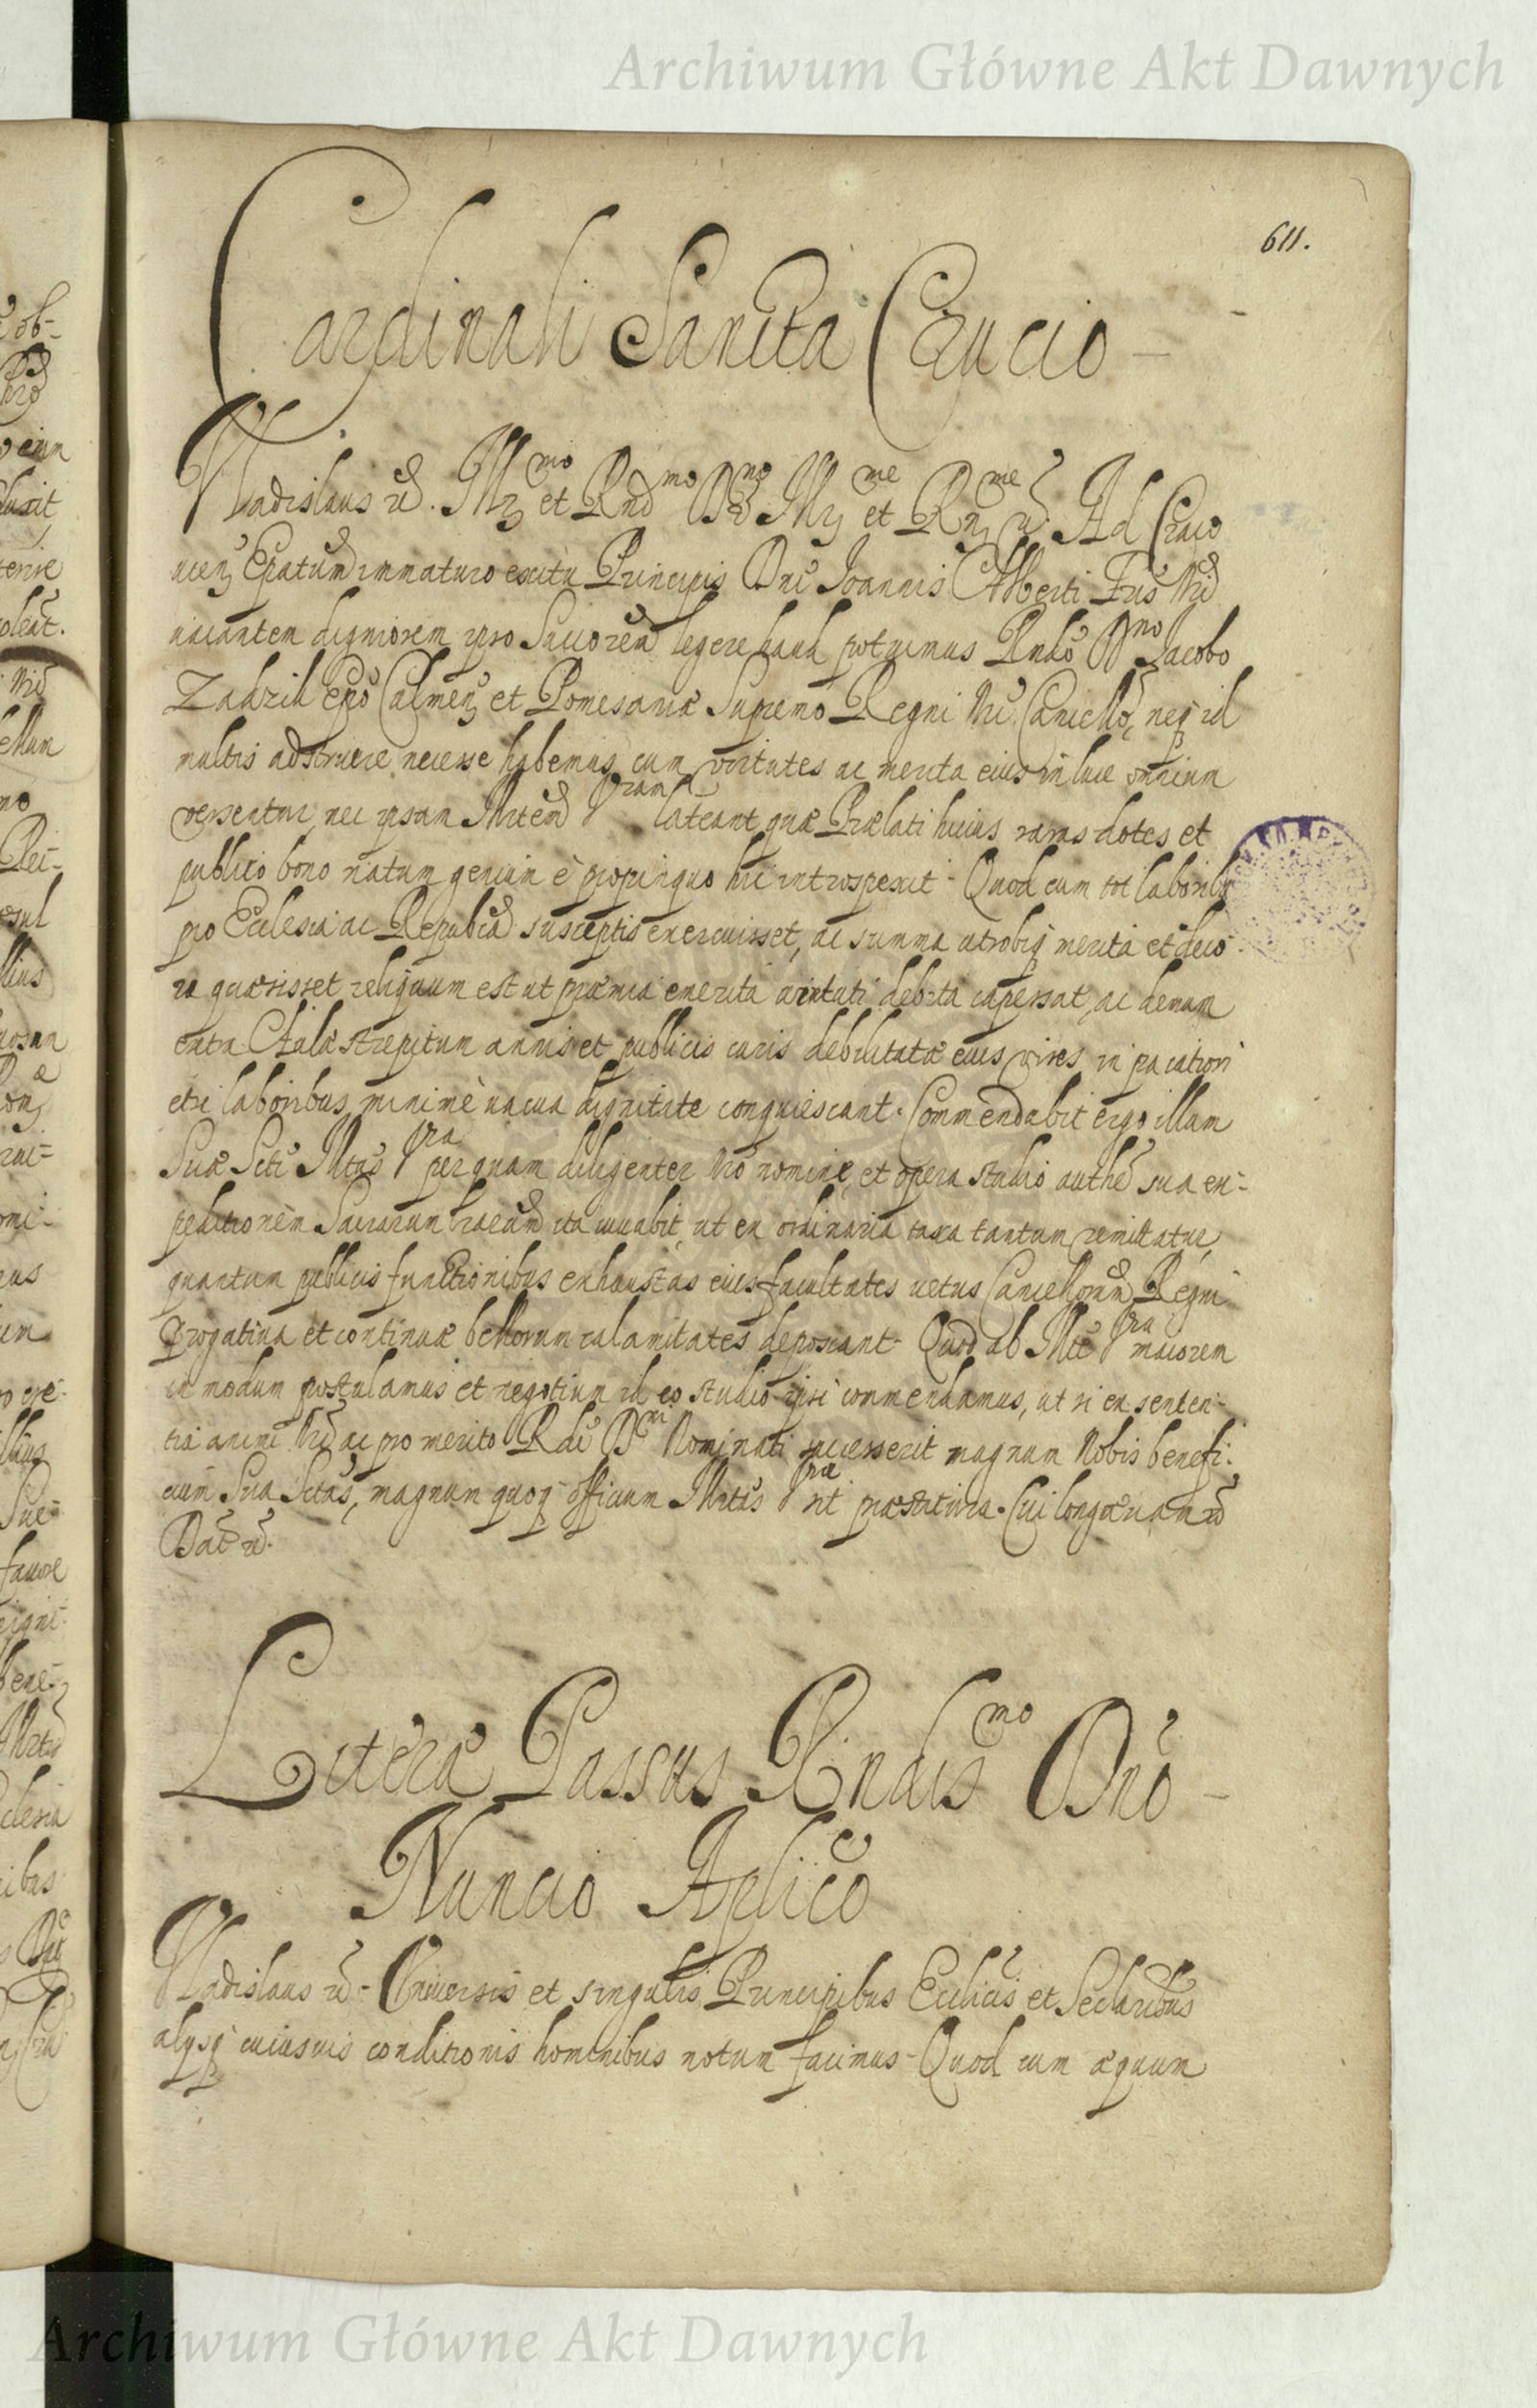 Archiwum Główne Akt Dawnych
611.
Cardinali Sancta Crucio
Vladislaus et. Illmo et Rndmo Dno Illme et Rnme Ad Craco
uien Epatum immaturo exitu Principis Dni Joannis Alberti Fris Nri
uacantem digniorem ipso Succorem legere haud potuimus Rndo Dno Jacobo
Zadzik epo Culmen et Pomesaniæ Supremo Regni Nri Cancello, neq id
multis adstruere necesse habemus, cum virtutes ac merita eius in luce omnium
versentur, nec ipsam Illrtem Vram lateant quæ Prælati huius raras dotes et
publico bono natum genium è propinquo hic introspexit - Quod cum tot laborib
pro Ecclesia ac Republca susceptis exercuisset, ac summa utrobiq merita et deco
ra quæsisset reliquum est ut præmia emerita virtuti debita capessat, ac demum
extra Aulæ strepitum annis et publicis curis debilitatæ eius vires in pacatiori
etsi laboribus minimè uacua dignitate conquiescant. Commendabit ergo illum
Suæ Scti Illtas Vra perquam diligenter Nro nomine, et opera studio authe sua ex-
peditionem Sacrarum lrarum ita iuuabit, ut ex ordinaria taxa tantum remittatur,
quantum publicis functionibus exhaustas eius facultates uetus Cancellorum Regni
Prrogatiua et continuæ bellorum calamitates deposcant - Quod ab Illte Vra maiorem
in modum postulamus et negotium id eo studio ipsi commendamus, ut si ex senten-
tia animi Nri ac pro merito Rdi Dni Nominati successerit magnum Nobis benefi-
cium Sua Sctas, magnum quoq officium Illrtas Vra sit præstitura. Cui longæuam et
Dat et.
Literæ Passus Rndismo Dno
Nuncio Aplico
Vladislaus et - Vniuersis et singulis Principibus Ecclicis et Seclaribus
alysq cuiusuis conditionis hominibus notum facimus - Quod cum æquum
Archiwum Główne Akt Dawnych